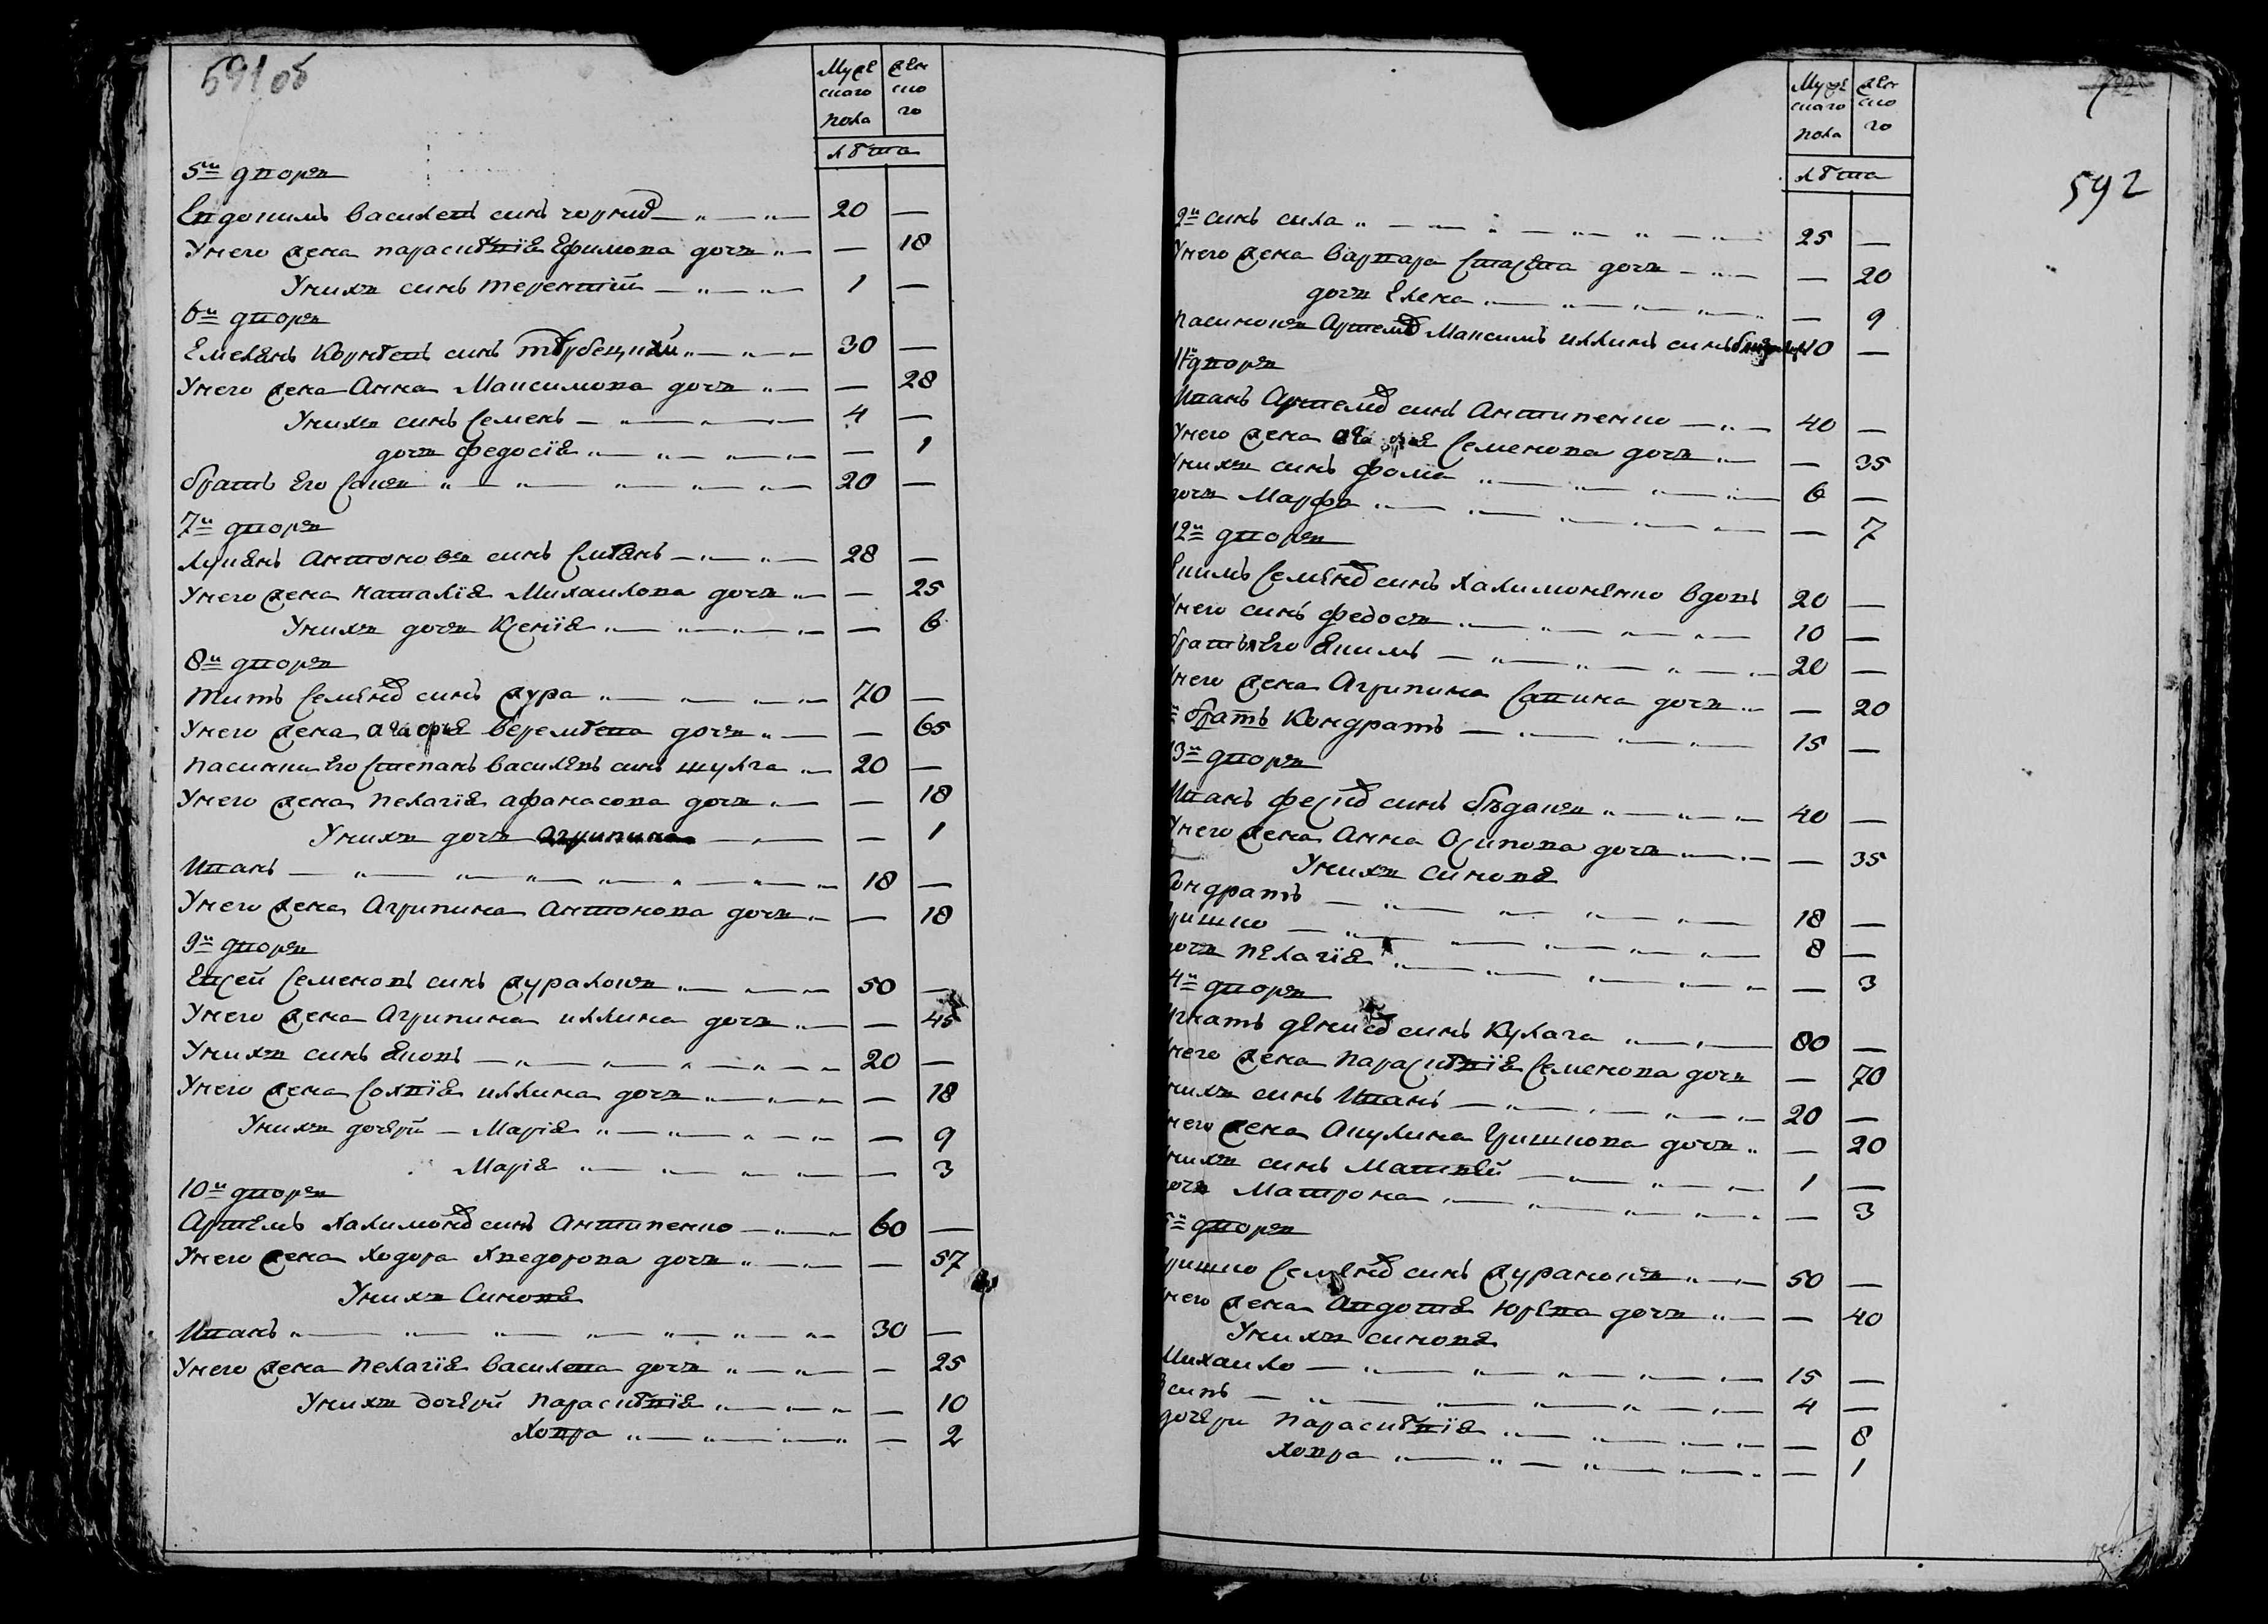 591 об
Мужескаго пола
женского
лѣта
5й дворъ
Евдокимъ Василевъ синъ чорний 20 —
У него жена Параскѣвїя Ефимова дочъ — 18
У нихъ синъ Терентий 1 —
6й дворъ
Емелянъ Корнѣевъ синъ 30 —
У него жена Анна Максимова дочъ — 28
У нихъ синъ Семенъ 4 —
дочъ Федосїя — 1
братъ Его Савка 20 —
7й дворъ
Лукянъ Антоновъ синъ 28 —
У него жена Наталїя Михаилова дочъ — 25
У нихъ дочъ Ксенїя — 6
8й дворъ
Титъ Семенов синъ жура 70 —
У него жена Агафїя Веремѣева дочъ — 65
Пасинки Его Степанъ Василевъ синъ шулга 20 —
У него жена Пелагїя Афанасова дочъ — 18
У нихъ дочъ Агрипина — 1
Иванъ 18 —
У него жена Агрипина Антонова дочъ — 18
9й дворъ
Евсей Семеновъ синъ 50 —
У него жена Агрипина иллина дочъ — 45
У нихъ синъ Яковъ 20 —
У него жена Солхвїя иллина дочъ — 18
У нихъ дочери — Марїя — 9
Марїя — 3
10й дворъ
Артемъ Халимонов синъ Антипенко 60 —
У него жена Ходора Хведорова дочъ — 57
У нихъ Синовя
Иванъ 30 —
У него жена Пелагїя Василева дочъ — 25
У нихъ дочери Параскѣвїя — 10
Ховра — 2
592
Мужескаго пола
женского
лѣта
2й синъ сила 25 —
У него жена Варвара Стасева дочъ — 20
дочъ Елена — 9
Пасинокъ Артемов Максимъ иллинъ синъ 10 —
11й дворъ
Иванъ Артемов синъ Антипенко 40 —
У него жена Семенова дочъ — 35
У нихъ синъ Фома 6 —
дочъ Марфа — 7
12й дворъ
Екимъ Семенов синъ Халимоненко вдовъ 20 —
У него синъ федосъ 10 —
братъ Его Якимъ 20 —
У него жена Агрипина Савина дочъ — 20
братъ Кондратъ 15 —
13й дворъ
Иванъ синъ 40 —
У него жена Анна Осипова дочъ — 35
У нихъ синовя
Кондратъ 18 —
Гришко 8 —
дочъ Пелагїя — 3
14й дворъ
Игнатъ Денисов синъ Кулага 80 —
У него жена Параскѣвїя Семенова дочъ — 70
У нихъ синъ Иванъ 20 —
У него жена Акулина Гришкова дочъ — 20
У нихъ синъ Матвей 1 —
дочъ Матрона — 3
15й дворъ
Гришко Семенов синъ 50 —
У него жена Авдотия Юрева дочъ — 40
У нихъ синовя
Михаило 15 —
4 —
дочери Параскѣвїя — 8
Ховра — 1